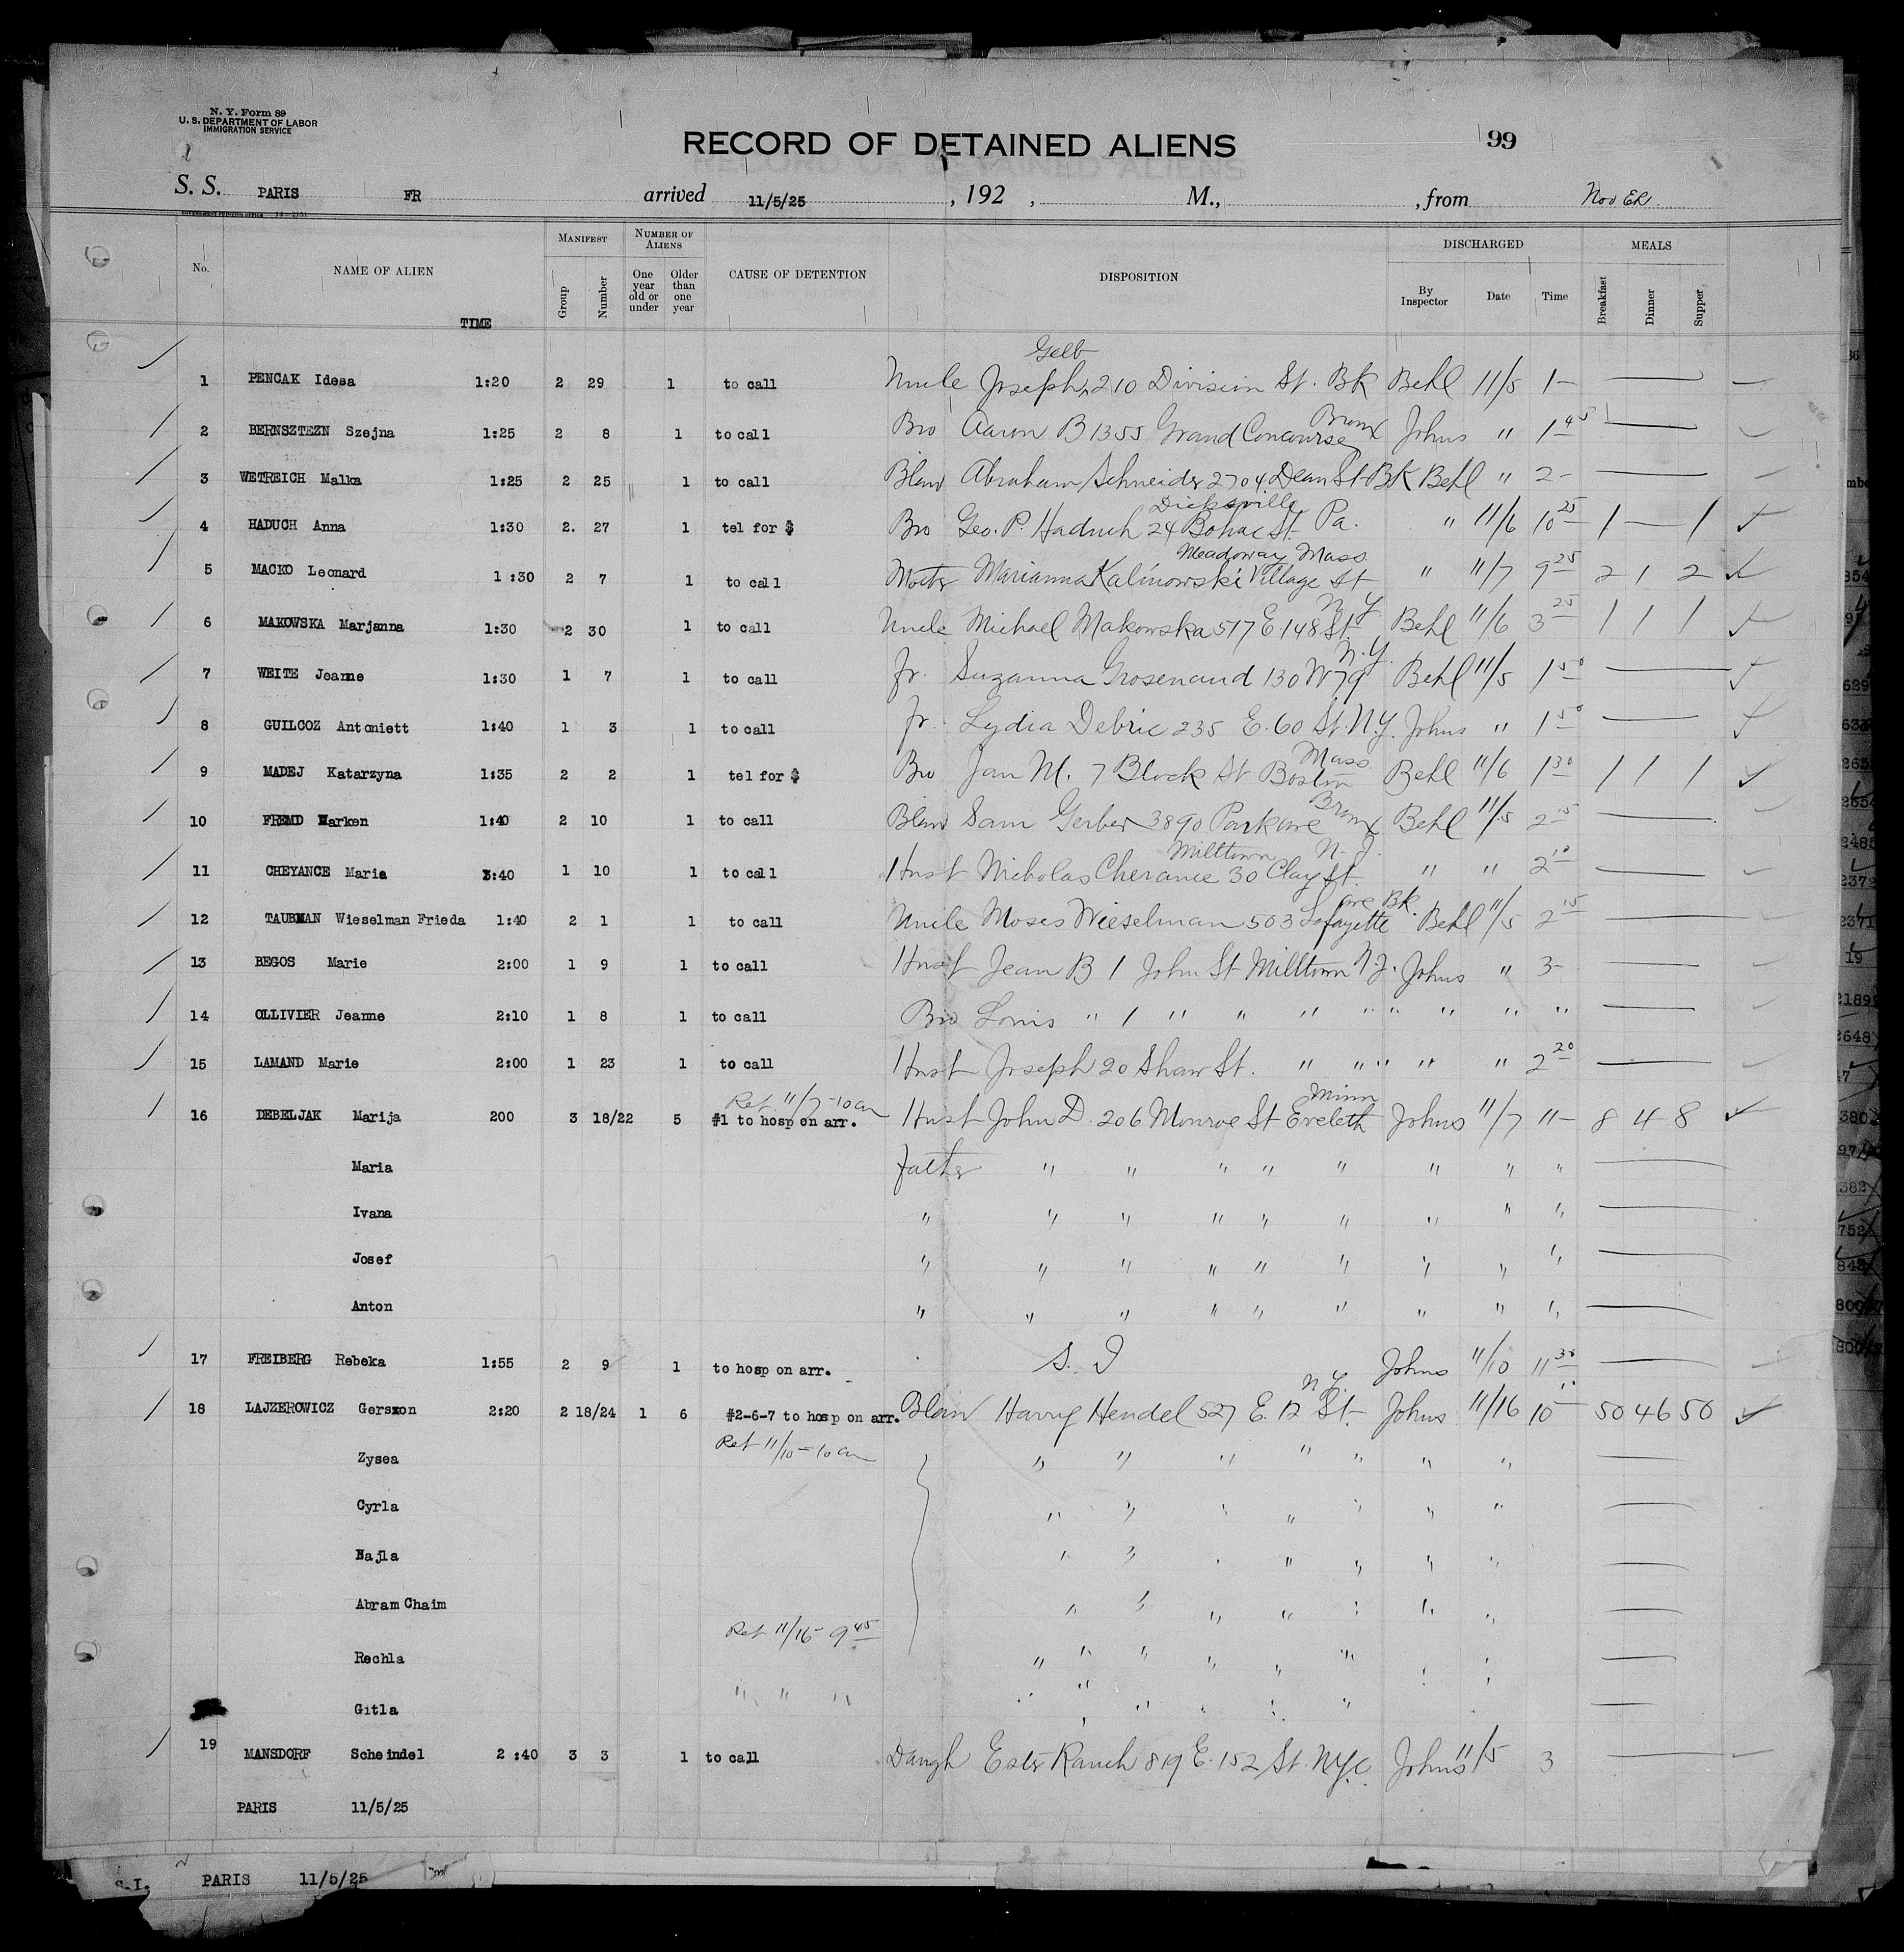 N. Y. Form 89
U. S. DEPARTMENT OF LABOR
IMMIGRATION SERVICE
RECORD OF DETAINED ALIENS 99
S. S. PARIS FR arrived 11/5/25, 192 , M., , from Nov
No. NAME OF ALIEN TIME MANIFEST Group Number NUMBER OF ALIENS One year old or under Older than one year CAUSE OF DETENTION DISPOSITION DISCHARGED By Inspector Date Time MEALS Breakfast Dinner Supper
Gelb
1 PENCAK Idesa 1:20 2 29 1 to call Uncle Joseph 210 Division St. Bk Behl 11/5 1-
Bronx
2 BERNSZTEZN Szejna 1:25 2 8 1 to call Bro Aaron B 1355 Grand Concourse Johns " 1 45
3 WETREICH Malka 1:25 2 25 1 to call Blaw Abraham Schneider 2704 Dean St Bk Behl " 2-
Dicksville
4 HADUCH Anna 1:30 2. 27 1 tel for $ Bro Geo. P. Haduch 24 Bohac St. Pa. " 11/6 10 25 1 — 1
Meadoway Mass
5 MACKO Leonard 1:30 2 7 1 to call Marianna Kalinowski Village St " 11/7 9 25 2 1 2
N Y
6 MAKOWSKA Marjanna 1:30 2 30 1 to call Uncle Michael Makowska 517 E 148 St. Behl 11/6 3 25 1 1 1
N.Y.
7 WEITE Jeanne 1:30 1 7 1 to call fr. Suzanna Grosenaud 130 W 79 Behl 11/5 1 50
8 GUILCOZ Antoniett 1:40 1 3 1 to call fr. Lydia Debric 235 E. 60 St. N.Y. Johns " 1 50
Mass
9 MADEJ Katarzyna 1:35 2 2 1 tel for $ Bro Jan M. 7 Block St Boston Behl 11/6 1 30 1 1 1
Bronx
10 FREMD Marken 1:40 2 10 1 to call Blaw Sam Gerber 3890 Park ave Behl 11/5 2 15
Milltown N. J.
11 CHEYANCE Marie 3:40 1 10 1 to call Husb Nicholas Cherance 30 Clay St. " " 2 10
ave Bk.
12 TAUBMAN Wieselman Frieda 1:40 2 1 1 to call Uncle Moses Wieselman 503 Lafayette Behl 11/5 2 15
13 BEGOS Marie 2:00 1 9 1 to call Husb Jean B 1 John St Milltown N.J. Johns " 3-
14 OLLIVIER Jeanne 2:10 1 8 1 to call Bro Louis " 1 " " " " " " " "
15 LAMAND Marie 2:00 1 23 1 to call Husb Joseph 20 Shaw St. " " " " " 2 20
Ret 11/7 - 10 am Minn
16 DEBELJAK Marija 200 3 18/22 5 #1 to hosp on arr. Husb John D. 206 Monroe St Eveleth Johns 11/7 11- 8 4 8
Maria Father " " " " " " " "
Ivana " " " " " " " " "
Josef " " " " " " " " "
Anton " " " " " " " " "
17 FREIBERG Rebeka 1:55 2 9 1 to hosp on arr. S. I Johns 11/10 11 30
N. Y.
18 LAJZEROWICZ Gerszon 2:20 2 18/24 1 6 #2-6-7 to hosp on arr. Blaw Harry Hendel 527 E. 12 St. Johns 11/16 10 50 46 50
Ret 11/10 - 10 am
Zysea " " " " " " "
Cyrla " " " " " " "
Najla " " " " " " "
Abram Chaim " " " " " " "
Ret 11/15 9 45
Rechla " " " " " " " "
" " "
Gitla " " " " " "
19 MANSDORF Scheindel 2:40 3 3 1 to call Daugh Ester Rauch 819 E. 152 St. NYC. Johns 11/5 3
PARIS 11/5/25
S.I. PARIS 11/5/25